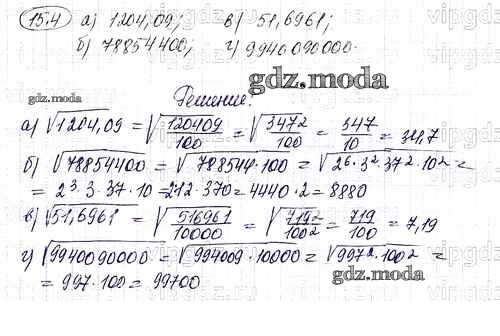 15.4 а) 1204,09; в) 51,6961;
б) 78854400; г) 9940090000.
gdz.moda
gdz.moda Решение:
а) √1204,09 = √120409/100 = √347²/10² = 347/10 = 34,7
б) √78854400 = √788544·100 = √2⁶·3²·37²·10² =
= 2³·3·37·10 = 212·370 = 4440·2 = 8880
в) √51,6961 = √516961/10000 = √719²/100² = 719/100 = 7,19
г) √9940090000 = √994009·10000 = √997²·100² =
= 997·100 = 99700
gdz.moda